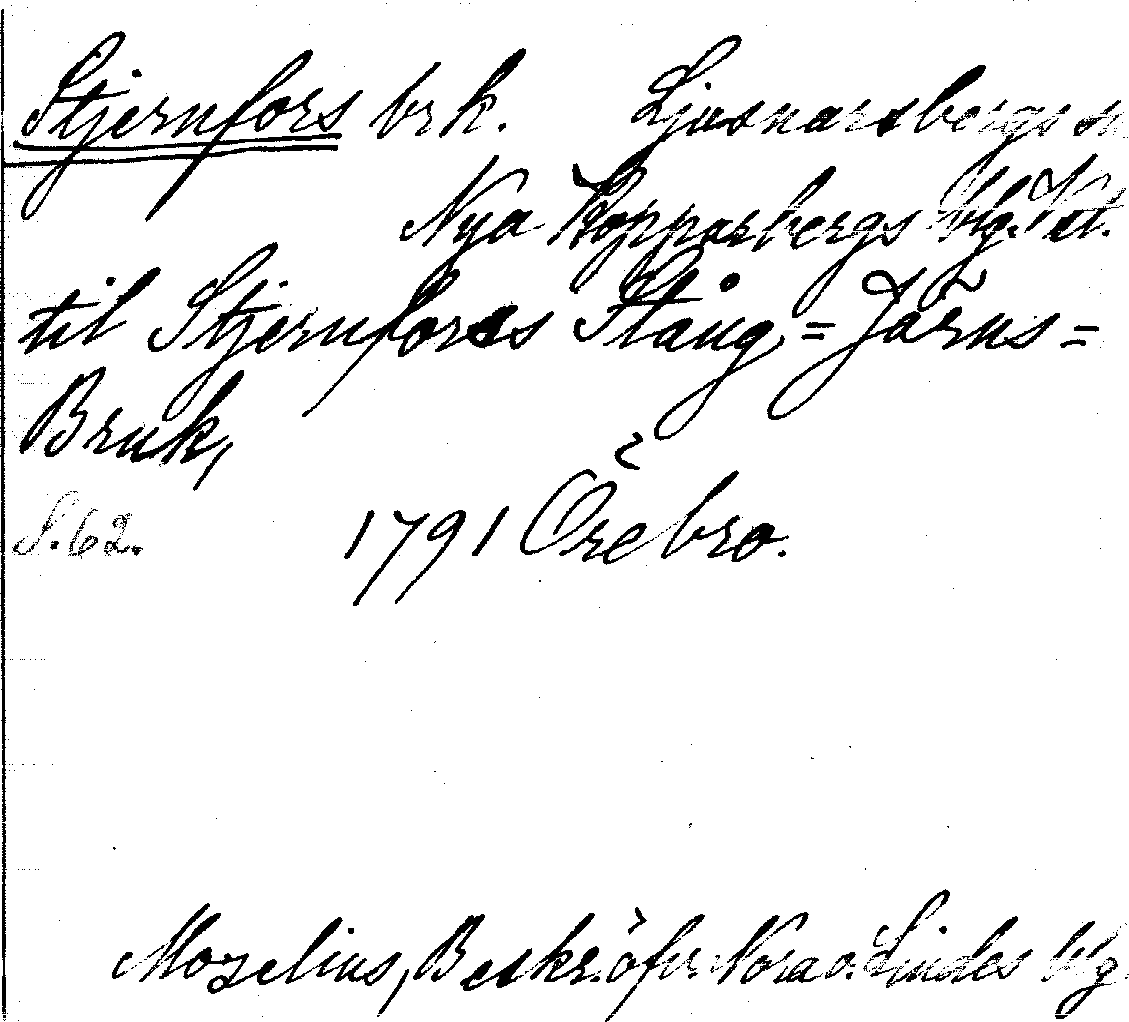 Stjernfors brk. Ljusnarsbergs sn
Nya Kopparbergs blg. Vst.
til Stjernfors Stång=Järns=
Bruk,
S. 62. 1791 Örebro.
Mozelius, Beskr. öfv. Nora o. Lindes blg